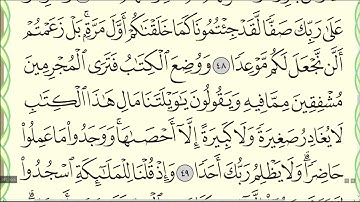 عَلَىٰ رَبِّكَ صَفًّا لَّقَدْ جِئْتُمُونَا كَمَا خَلَقْنَٰكُمْ أَوَّلَ مَرَّةٍۭ ۚ بَلْ زَعَمْتُمْ
أَلَّن نَّجْعَلَ لَكُم مَّوْعِدًا ٤٨ وَوُضِعَ ٱلْكِتَٰبُ فَتَرَى ٱلْمُجْرِمِينَ
مُشْفِقِينَ مِمَّا فِيهِ وَيَقُولُونَ يَٰوَيْلَتَنَا مَالِ هَٰذَا ٱلْكِتَٰبِ
لَا يُغَادِرُ صَغِيرَةً وَلَا كَبِيرَةً إِلَّآ أَحْصَىٰهَا ۚ وَوَجَدُوا۟ مَا عَمِلُوا۟
حَاضِرًا ۗ وَلَا يَظْلِمُ رَبُّكَ أَحَدًا ٤٩ وَإِذْ قُلْنَا لِلْمَلَٰٓئِكَةِ ٱسْجُدُوا۟